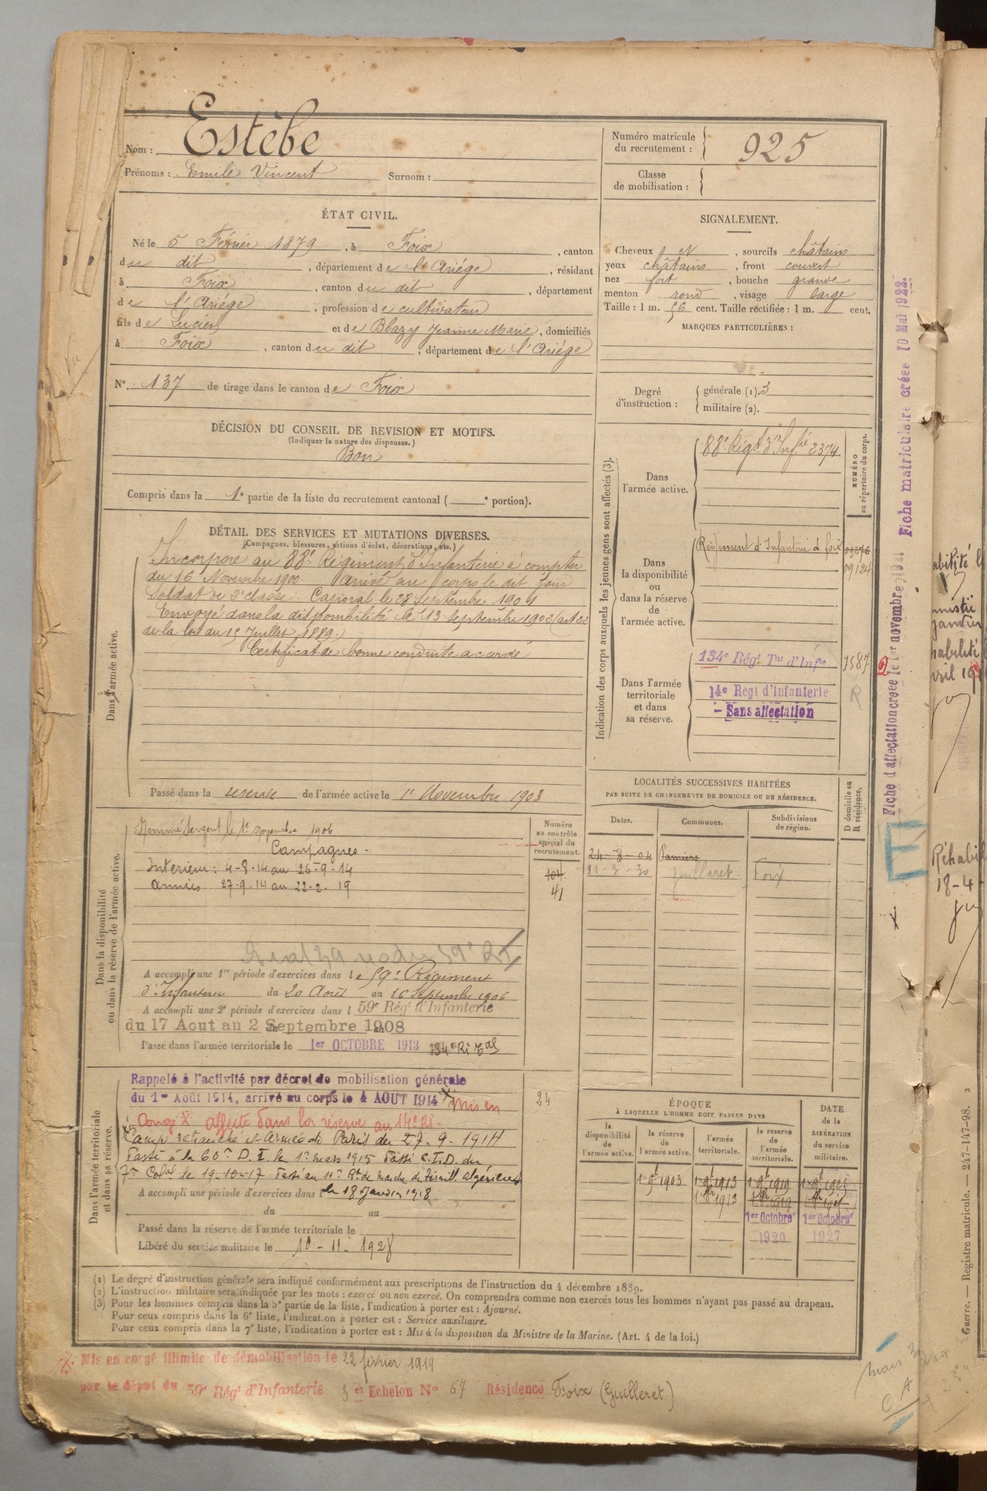 Nom : Estèbe
Prénoms : Emile Vincent Surnom :
Numéro matricule du recrutement : 925
Classe de mobilisation :
ÉTAT CIVIL.
Né le 5 Février 1879, à Foix, canton
du dit, département de l'Ariége, résidant
à Foix, canton du dit, département
de l'Ariége, profession de cultivateur
fils de Lucien et de Blazy Jeanne Marie, domiciliés
à Foix, canton du dit, département de l'Ariége
N° 137 de tirage dans le canton de Foix
SIGNALEMENT.
Cheveux et, sourcils châtains
yeux châtains, front couvert
nez fort, bouche grande
menton rond, visage large
Taille : 1 m. 56 cent. Taille rectifiée : 1 m. cent.
MARQUES PARTICULIÈRES :
Degré d'instruction : générale (1). 3
militaire (2).
DÉCISION DU CONSEIL DE REVISION ET MOTIFS.
(Indiquer la nature des dispenses.)
Bon
Compris dans la 1e partie de la liste du recrutement cantonal ( e portion).
DÉTAIL DES SERVICES ET MUTATIONS DIVERSES.
(Campagnes, blessures, actions d'éclat, décorations, etc.)
Dans l'armée active.
Incorporé au 88e Régiment d'Infanterie à compter
du 16 Novembre 1900. Arrivé au corps le dit jour
Soldat de 2e classe. Caporal le 28 Septembre 1901
Envoyé dans la disponibilité le 13 Septembre 1902 (art 22
de la loi du 15 Juillet 1889.)
Certificat de bonne conduite accordé
Passé dans la réserve de l'armée active le 1er Novembre 1903
Indication des corps auxquels les jeunes gens sont affectés (3).
NUMÉRO au répertoire du corps.
Dans l'armée active.
88e Régt d'Infie 2374
Dans la disponibilité ou dans la réserve de l'armée active.
Régiment d'Infanterie de foix
09124
Dans l'armée territoriale et dans sa réserve.
134e Régt Tal d'Infie 1587
14e Regt d'Infanterie R
- Sans affectation
LOCALITÉS SUCCESSIVES HABITÉES
PAR SUITE DE CHANGEMENTS DE DOMICILE OU DE RÉSIDENCE.
Dates. Communes. Subdivisions de région. D domicile ou R résidence.
24-8-04 Pamiers
Foix
Dans la disponibilité ou dans la réserve de l'armée active.
Numéro au contrôle spécial du recrutement.
Nommé sergent le 1er novembre 1906
Campagnes.
Intérieur : 4-8-14 au 26-9-14
Armées 27-9-14 au 22-2-19
41
A accompli une 1re période d'exercices dans le 59e Régiment
d'Infanterie du 20 Août au 16 Septembre 1906
A accompli une 2e période d'exercices dans l 59e Régt d'Infanterie
du 17 Aout au 2 Septembre 1908
Passé dans l'armée territoriale le 1er OCTOBRE 1913 134e Ri Tal
Dans l'armée territoriale et dans sa réserve.
Rappelé à l'activité par décret de mobilisation générale
du 1er Août 1914, arrivé au corps le 4 AOUT 1914 Mis en
Congé X. affecté dans la réserve au 14e Ri.
Camp retranché et Armée de Paris du 27-9-1914
Passé à la 60me D.I. le 1er mars 1915 Passé C.I.D. du
7me Colal le 19-10-17 Passé au 11e Rt de marche de Tiraill. algériens
le 18 Janvier 1918
A accompli une période d'exercices dans l
du au
Passé dans la réserve de l'armée territoriale le
Libéré du service militaire le 10-11-1928
24
ÉPOQUE
À LAQUELLE L'HOMME DOIT PASSER DANS
DATE DE LA LIBÉRATION du service militaire.
la disponibilité de l'armée active.
la réserve de l'armée active.
l'armée territoriale.
la réserve de l'armée territoriale.
1er 9bre 1903
1er Octobre 1920
1er Octobre 1927
(1) Le degré d'instruction générale sera indiqué conformément aux prescriptions de l'instruction du 4 décembre 1889.
(2) L'instruction militaire sera indiquée par les mots : exercé ou non exercé. On comprendra comme non exercés tous les hommes n'ayant pas passé au drapeau.
(3) Pour les hommes compris dans la 5e partie de la liste, l'indication à porter est : Ajourné.
Pour ceux compris dans la 6e liste, l'indication à porter est : Service auxiliaire.
Pour ceux compris dans la 7e liste, l'indication à porter est : Mis à la disposition du Ministre de la Marine. (Art. 4 de la loi.)
Mis en congé illimité de démobilisation le 22 février 1919
par le dépôt du 59e Régt d'Infanterie 3 Echelon N° 67 Résidence Foix (Guilleret)
Fiche d'affectation créée le 1er novembre 1921
Fiche matriculaire créée 10 Mai 1922.
Guerre. — Registre matricule. — 247-147-98.
18-4-